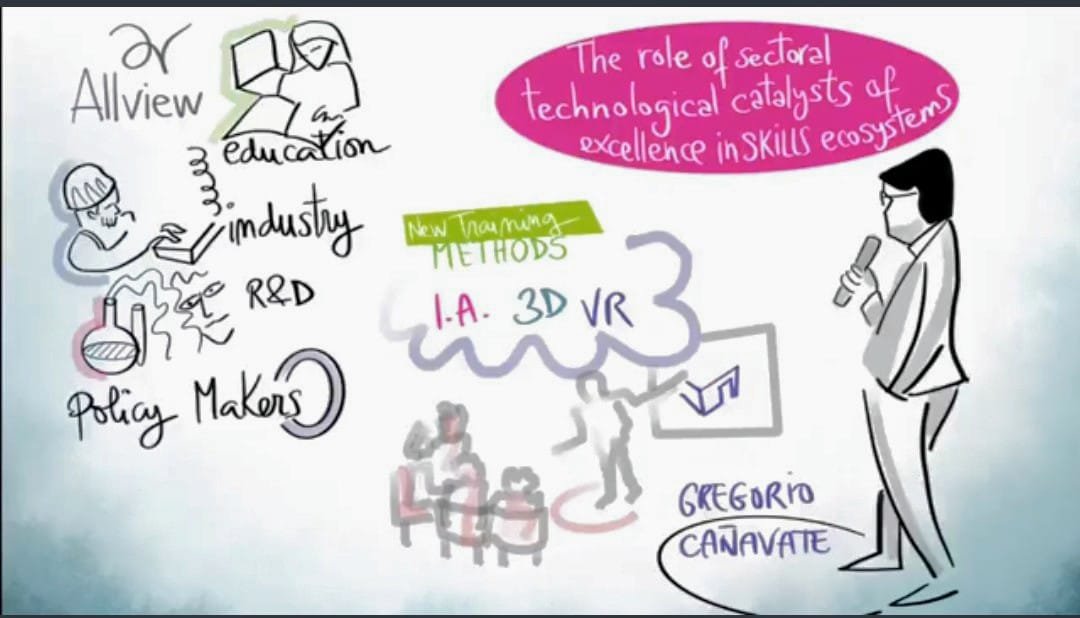 Allview
education
industry
R&D
Policy Makers
The role of sectoral
technological catalysts of
excellence in SKILLS ecosystems
New Training
METHODS
I.A. 3D VR
GREGORIO
CAÑAVATE